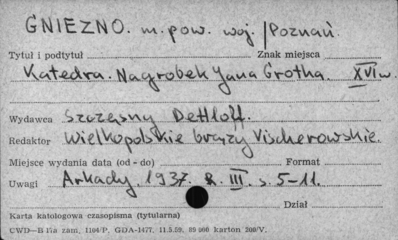 GNIEZNO. m. pow. woj. Poznań.
Tytuł i podtytuł Znak miejsca
Katedra. Nagrobek Jana Grotha. XVI w.
Wydawca Szczęsny Dettloff.
Redaktor Wielkopolskie brązy Vischerowskie.
Miejsce wydania data (od - do) Format
Uwagi Arkady. 1937. R. III. s. 5-11.
Dział
Karta katologowa czasopisma (tytularna)
CWD—B 17a zam. 1104/P. GDA-1477. 11.5.59. 89 900 karton 200/V.